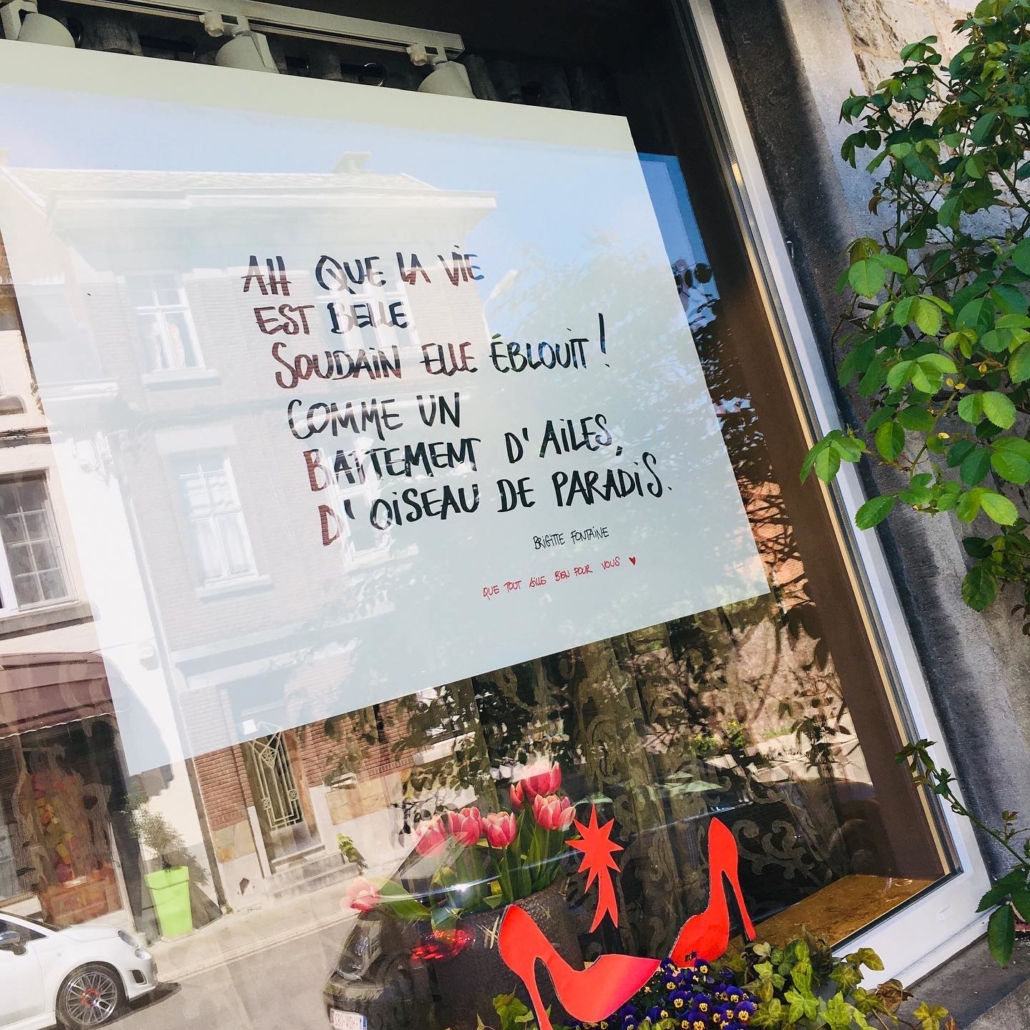 AH QUE LA VIE
EST BELLE
SOUDAIN ELLE ÉBLOUIT !
COMME UN
BATTEMENT D'AILES,
D'OISEAU DE PARADIS.
BRIGITTE FONTAINE
QUE TOUT AILLE BIEN POUR VOUS ♥